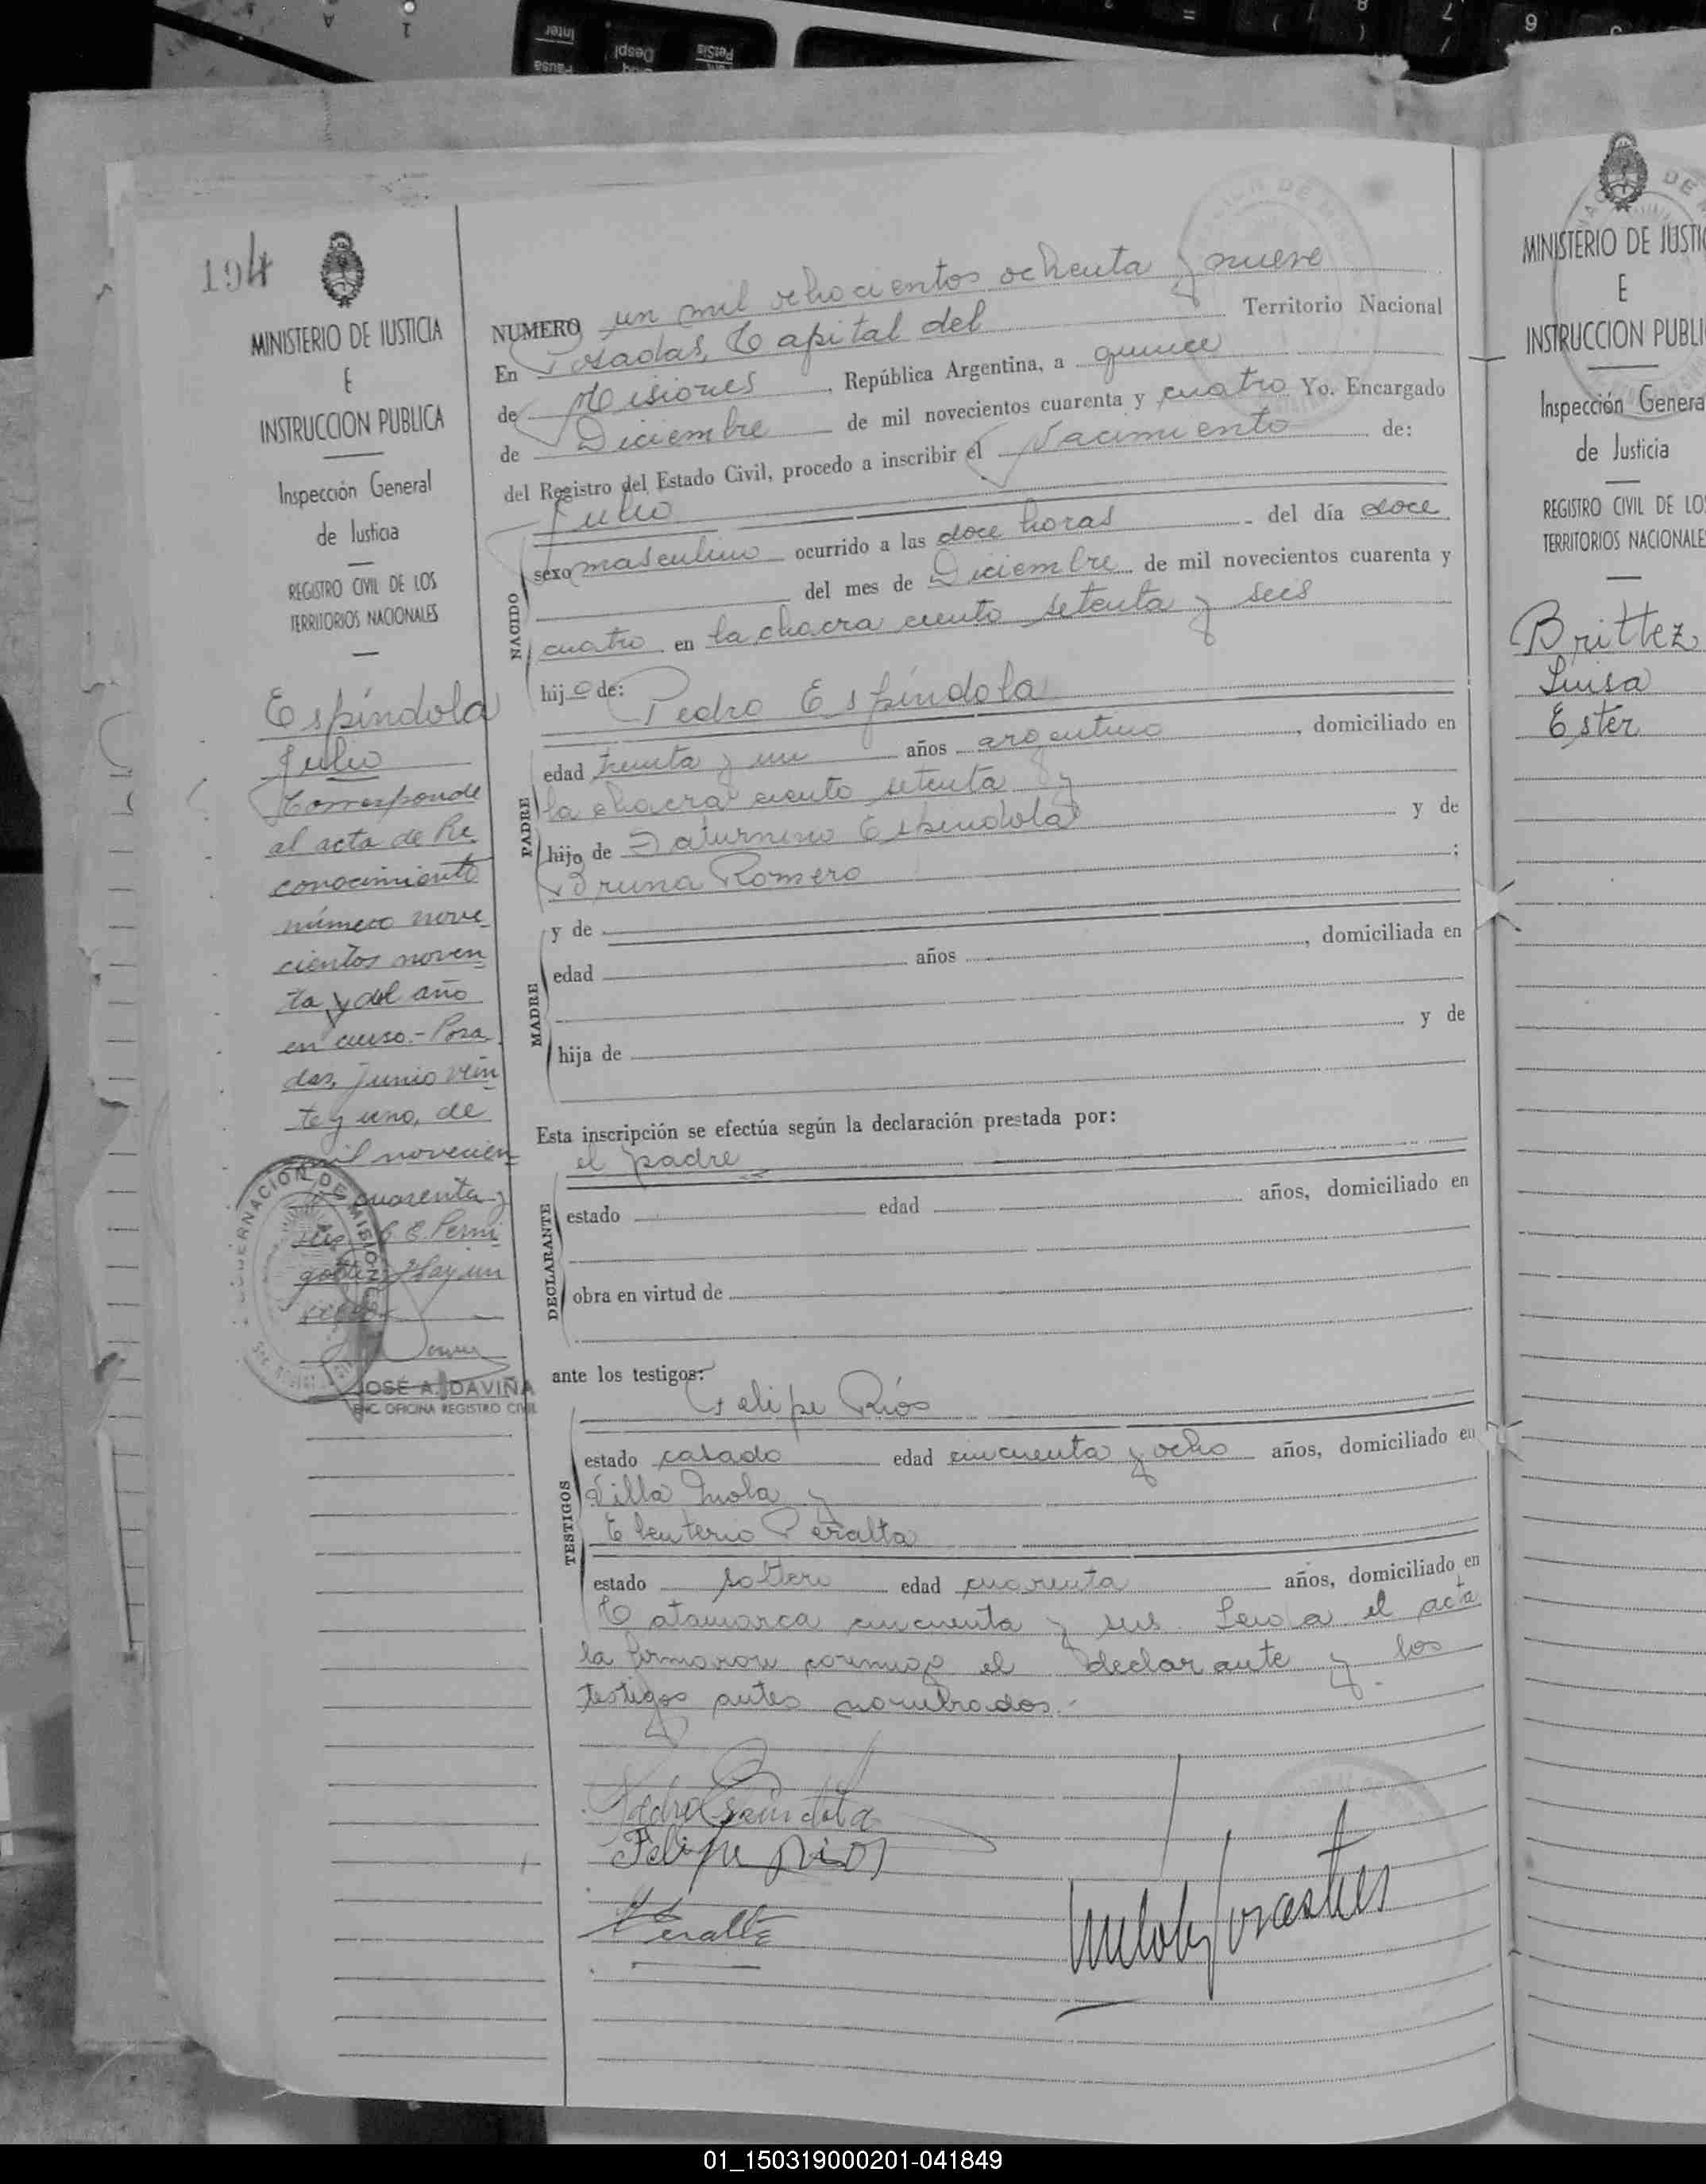 194
MINISTERIO DE JUSTICIA
E
INSTRUCCION PUBLICA
Inspección General
de Justicia
REGISTRO CIVIL DE LOS
TERRITORIOS NACIONALES
Espíndola
Julio
Corresponde
al acta de Re
conocimiento
número nove
cientos noven
ta y del año
en curso.- Posa
das, Junio vein
te y uno, de
mil novecien
cuarenta y
Hay un
JOSÉ A. DAVIÑA
ENC. OFICINA REGISTRO CIVIL
NUMERO un mil ochocientos ochenta y nueve
En Posadas, Capital del Territorio Nacional
de Misiones, República Argentina, a quince
de Diciembre de mil novecientos cuarenta y cuatro Yo. Encargado
del Registro del Estado Civil, procedo a inscribir el Nacimiento de:
Julio
NACIDO
sexo masculino ocurrido a las doce horas del día doce
del mes de Diciembre de mil novecientos cuarenta y
cuatro en la chacra ciento setenta y seis
hijo de: Pedro Espíndola
PADRE
edad treinta y un años argentino, domiciliado en
la chacra ciento setenta y
hijo de Saturnino Espindola y de
Bruna Romero;
MADRE
y de
edad años, domiciliada en
hija de y de
Esta inscripción se efectúa según la declaración prestada por:
el padre
DECLARANTE
estado edad años, domiciliado en
obra en virtud de
ante los testigos:
Felipe Ríos
TESTIGOS
estado casado edad cincuenta y ocho años, domiciliado en
Villa Mola y
Eleuterio Peralta
estado soltero edad cuarenta años, domiciliado en
Catamarca cincuenta y seis. Leida el acta
la firmaron conmigo el declarante y los
testigos antes nombrados.-
Pedro Espindola
Felipe Rios
Peralta
MINISTERIO DE JUSTIC
E
INSTRUCCION PUBLI
Inspección Genera
de Justicia
REGISTRO CIVIL DE LO
TERRITORIOS NACIONALE
Brittez
Luisa
Ester
01_150319000201-041849